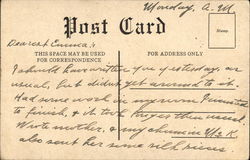 Monday, A.M
Post Card
Stamp
Dearest Emma,
THIS SPACE MAY BE USED FOR CORRESPONDENCE
FOR ADDRESS ONLY
I should have written you yesterday, as
usual, but didn't get around to it.
Had some work in my room I wanted
to finish, & it took longer than usual.
Wrote mother, & my chum in
also sent her some silk